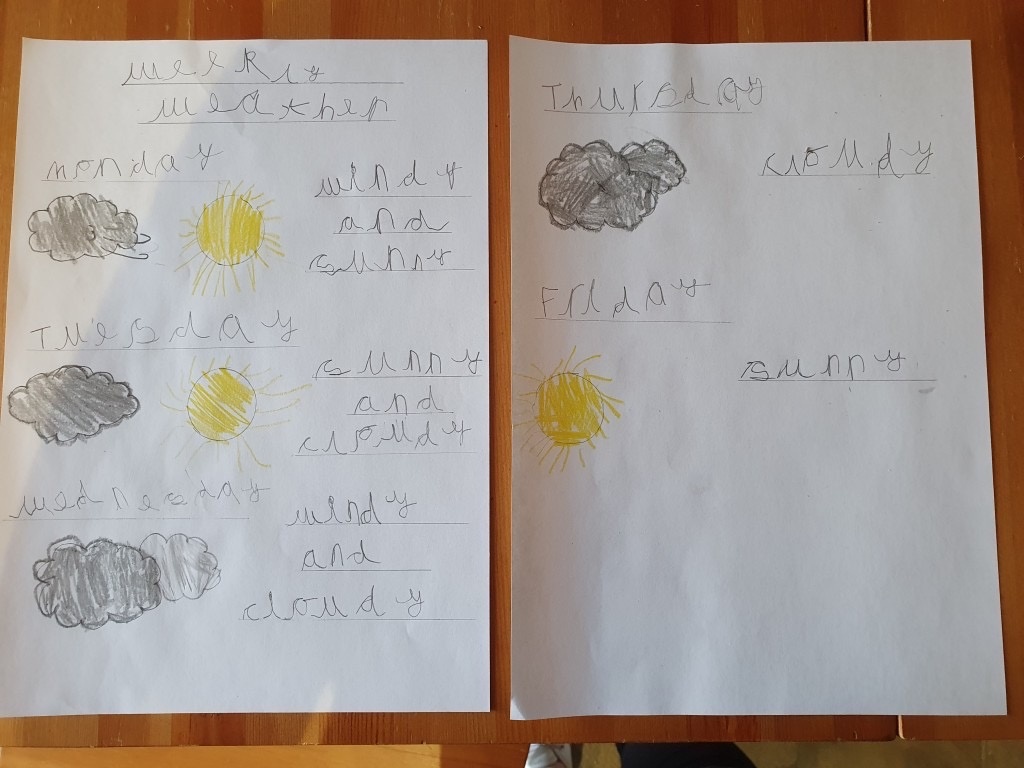 weekly
weather
monday
windy
and
sunny
Tuesday
sunny
and
cloudy
wednesday
windy
and
cloudy
Thursday
cloudy
Friday
sunny